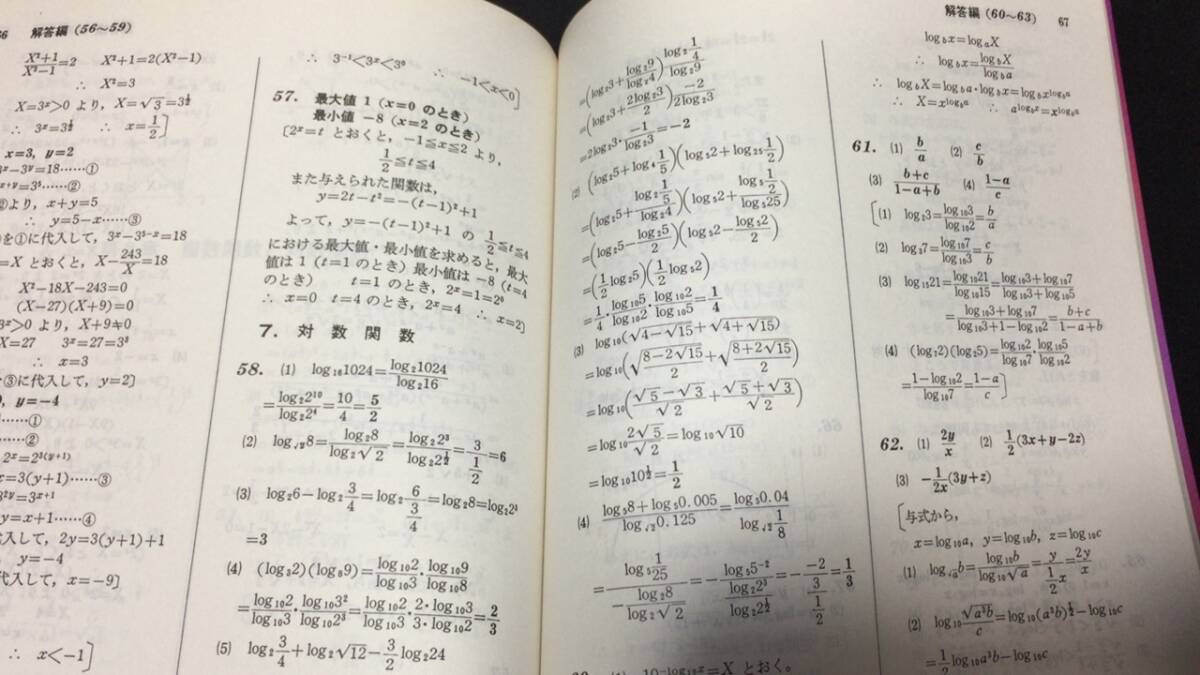 66 解答編 (56～59)
X²+1/X²−1=2 X²+1=2(X²−1)
∴ X²=3
X=3ˣ>0 より, X=√3=3^½
∴ 3ˣ=3^½ ∴ x=1/2]
x=3, y=2
3ˣ−3ʸ=18……①
ˣ⁺ʸ=3⁵……②
②より, x+y=5
∴ y=5−x……③
を①に代入して, 3ˣ−3⁵⁻ˣ=18
=X とおくと, X−243/X=18
X²−18X−243=0
(X−27)(X+9)=0
3ˣ>0 より, X+9≠0
X=27 3ˣ=27=3³
∴ x=3
③に代入して, y=2]
, y=−4
……①
……②
2ˣ=2^3(y+1)
x=3(y+1)……③
3^2y=3^x+1
y=x+1……④
代入して, 2y=3(y+1)+1
y=−4
代入して, x=−9]
∴ x<−1]
∴ 3⁻¹<3ˣ<3⁰ ∴ −1<x<0]
57. 最大値 1 (x=0 のとき)
最小値 −8 (x=2 のとき)
[2ˣ=t とおくと, −1≦x≦2 より,
1/2≦t≦4
また与えられた関数は,
y=2t−t²=−(t−1)²+1
よって, y=−(t−1)²+1 の 1/2≦t≦4
における最大値・最小値を求めると, 最大
値は 1 (t=1 のとき) 最小値は −8 (t=4
のとき) t=1 のとき, 2ˣ=1=2⁰
∴ x=0 t=4 のとき, 2ˣ=4 ∴ x=2]
7. 対 数 関 数
58. (1) log₁₆1024=log₂1024/log₂16
=log₂2¹⁰/log₂2⁴=10/4=5/2
(2) log_√2 8=log₂8/log₂√2=log₂2³/log₂2^½=3/(1/2)=6
(3) log₂6−log₂3/4=log₂6/(3/4)=log₂8=log₂2³
=3
(4) (log₃2)(log₈9)=log₁₀2/log₁₀3·log₁₀9/log₁₀8
=log₁₀2/log₁₀3·log₁₀3²/log₁₀2³=log₁₀2/log₁₀3·2·log₁₀3/3·log₁₀2=2/3
(5) log₂3/4+log₂√12−3/2log₂24
解答編 (60～63) 67
=(log₂3+log₂9/log₂4)log₂1/4/log₂9
=(log₂3+2log₂3/2)−2/2log₂3
=2log₂3·−1/log₂3=−2
(2) (log₂5+log₄1/5)(log₅2+log₂₅1/2)
=(log₂5+log₂1/5/log₂4)(log₅2+log₅1/2/log₅25)
=(log₂5−log₂5/2)(log₅2−log₅2/2)
=(1/2log₂5)(1/2log₅2)
=1/4·log₁₀5/log₁₀2·log₁₀2/log₁₀5=1/4
(3) log₁₀(√4−√15+√4+√15)
=log₁₀(√8−2√15/2+√8+2√15/2)
=log₁₀(√5−√3/√2+√5+√3/√2)
=log₁₀2√5/√2=log₁₀√10
=log₁₀10^½=1/2
(4) log₅8+log₅0.005/log_√2 0.125=log₅0.04/log_√2 1/8
=log₅1/25/−log₂8/log₂√2=−log₅5⁻²/log₂2³/log₂2^½=−−2/3/(1/2)=1/3
(1) 10^−log₁₀x=X とおく。
log_b x=log_a X
∴ log_b x=log_b X/log_b a
∴ log_b X=log_b a·log_b x=log_b x^log_b a
∴ X=x^log_b a ∴ a^log_b x=x^log_b a
61. (1) b/a (2) c/b
(3) b+c/1−a+b (4) 1−a/c
[(1) log₂3=log₁₀3/log₁₀2=b/a
(2) log₃7=log₁₀7/log₁₀3=c/b
(3) log₁₅21=log₁₀21/log₁₀15=log₁₀3+log₁₀7/log₁₀3+log₁₀5
=log₁₀3+log₁₀7/log₁₀3+1−log₁₀2=b+c/1−a+b
(4) (log₇2)(log₂5)=log₁₀2/log₁₀7·log₁₀5/log₁₀2
=1−log₁₀2/log₁₀7=1−a/c]
62. (1) 2y/x (2) 1/2(3x+y−2z)
(3) −1/2x(3y+z)
[与式から,
x=log₁₀a, y=log₁₀b, z=log₁₀c
(1) log_√a b=log₁₀b/log₁₀√a=y/(1/2)x=2y/x
(2) log₁₀√a³b/c=log₁₀(a³b)^½−log₁₀c
=1/2log₁₀a³b−log₁₀c